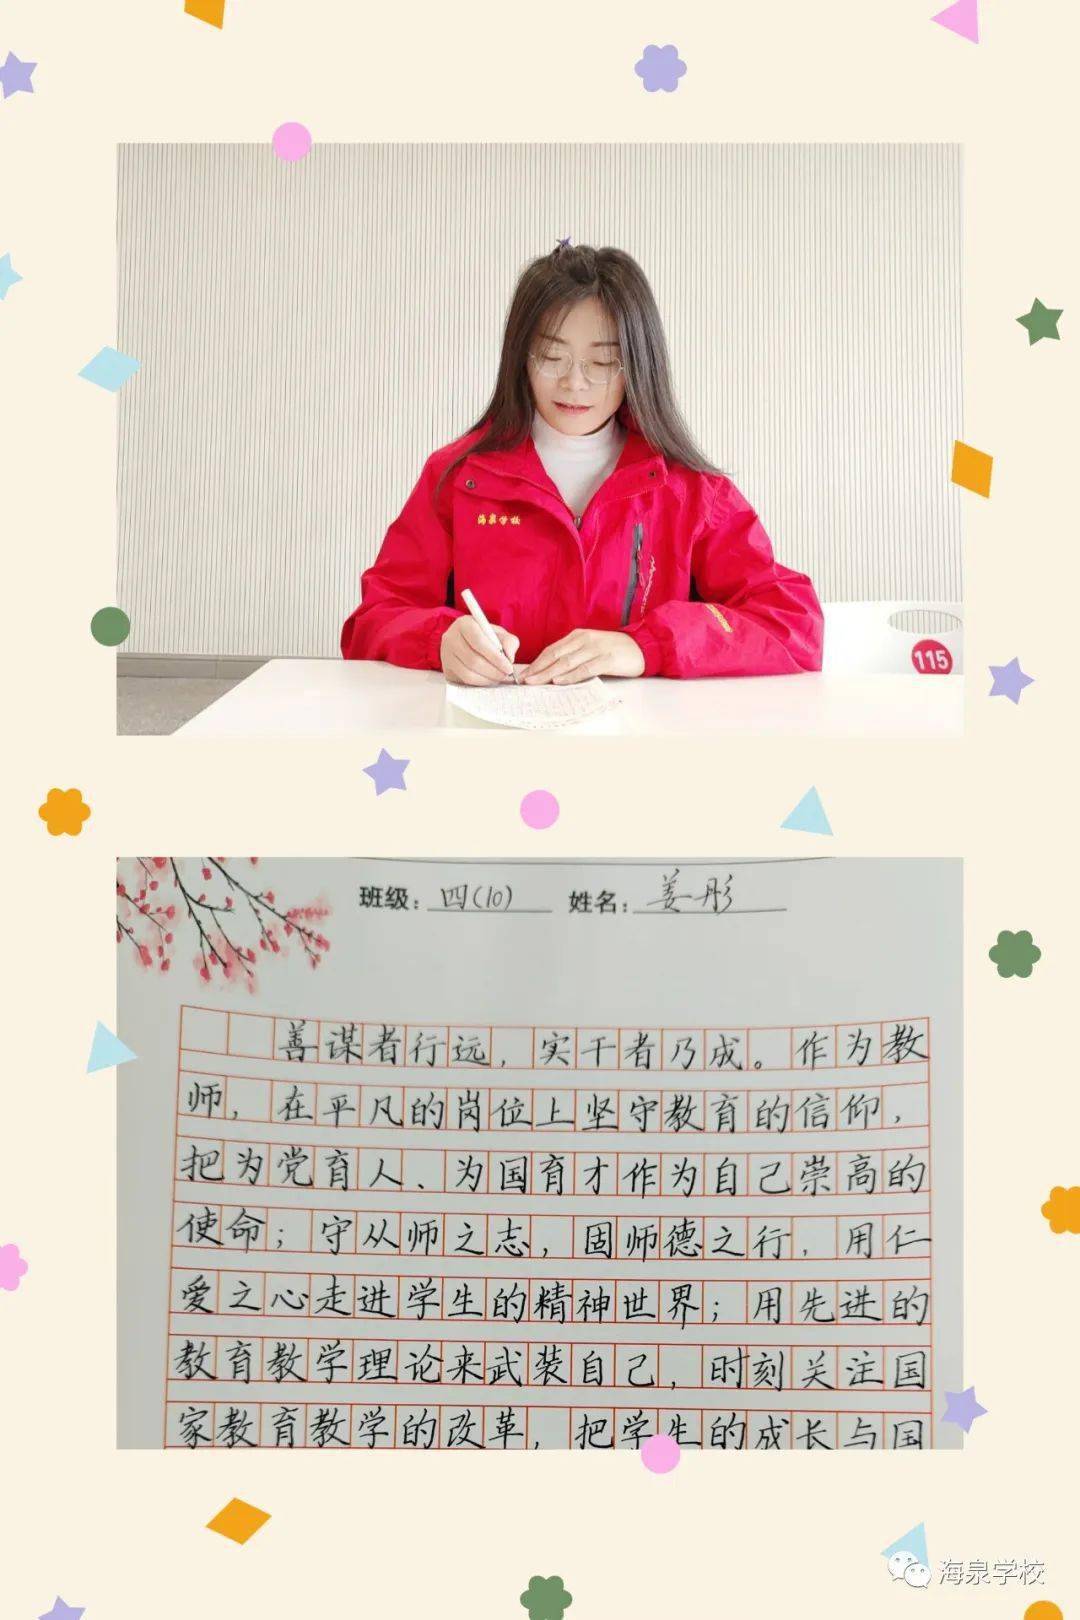 海泉学校
115
班级：四(10) 姓名：姜彤
善谋者行远，实干者乃成。作为教
师，在平凡的岗位上坚守教育的信仰，
把为党育人、为国育才作为自己崇高的
使命；守从师之志，固师德之行，用仁
爱之心走进学生的精神世界；用先进的
教育教学理论来武装自己，时刻关注国
家教育教学的改革，把学生的成长与国
海泉学校